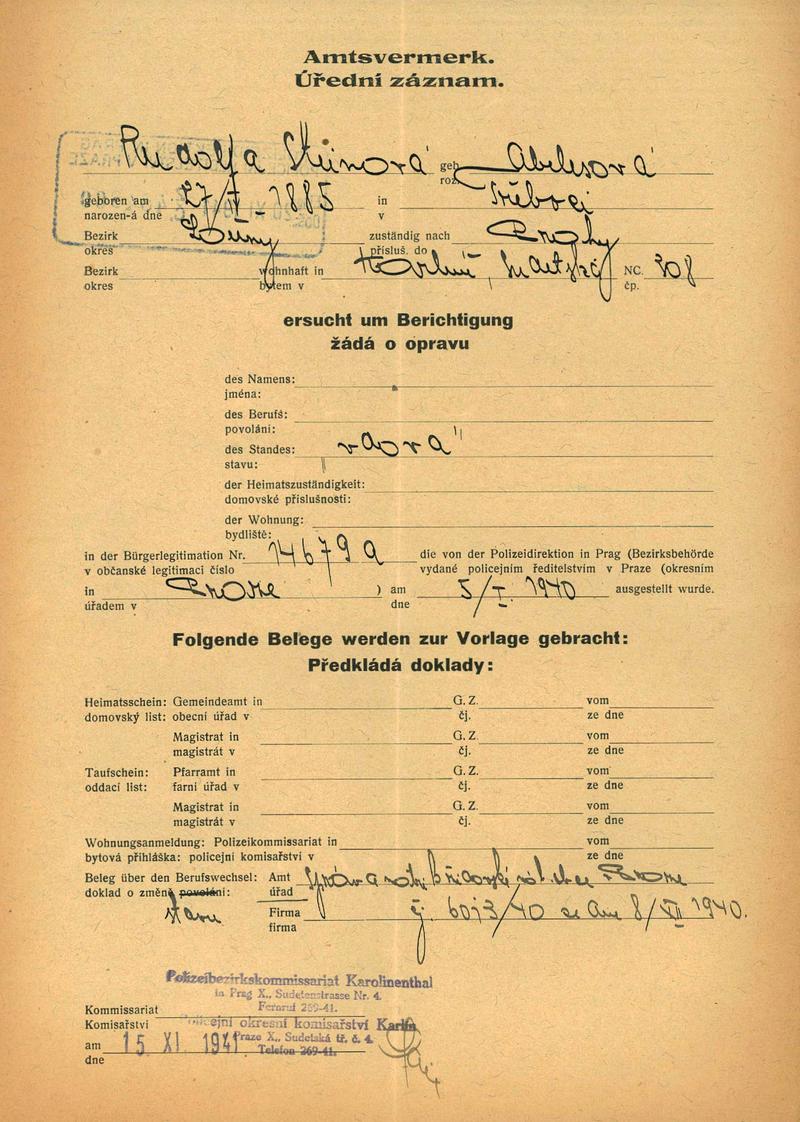 Amtsvermerk.
Úřední záznam.
Rudolfa geb. Abelesová
roz.
geboren am 27/ 1885 in
narozen-á dne v
Bezirk Louny zuständig nach Prahy
okres přísluš. do
Bezirk wohnhaft in Karlín, NC. 308
okres bytem v čp.
ersucht um Berichtigung
žádá o opravu
des Namens:
jména:
des Berufs:
povolání:
des Standes: vdova
stavu:
der Heimatszuständigkeit:
domovské příslušnosti:
der Wohnung:
bydliště:
in der Bürgerlegitimation Nr. 14679 die von der Polizeidirektion in Prag (Bezirksbehörde
v občanské legitimaci číslo vydané policejním ředitelstvím v Praze (okresním
in Praze ) am 5/I. 1940 ausgestellt wurde.
úřadem v dne
Folgende Belege werden zur Vorlage gebracht:
Předkládá doklady:
Heimatsschein: Gemeindeamt in G. Z. vom
domovský list: obecní úřad v čj. ze dne
Magistrat in G. Z. vom
magistrát v čj. ze dne
Taufschein: Pfarramt in G. Z. vom
oddací list: farní úřad v čj. ze dne
Magistrat in G. Z. vom
magistrát v čj. ze dne
Wohnungsanmeldung: Polizeikommissariat in vom
bytová přihláška: policejní komisařství v ze dne
Beleg über den Berufswechsel: Amt Praze
doklad o změně povolání: úřad
stavu
Firma č. j. /40 ze dne 8/ 1940.
firma
Polizeibezirkskommissariat Karolinenthal
in Prag X., Sudetenstrasse Nr. 4.
Kommissariat Fernruf 269-41.
Komisařství Policejní okresní komisařství Karlín
Praze X., Sudetská tř. č. 4.
am 15 XI. 1941 Telefon 269-41.
dne